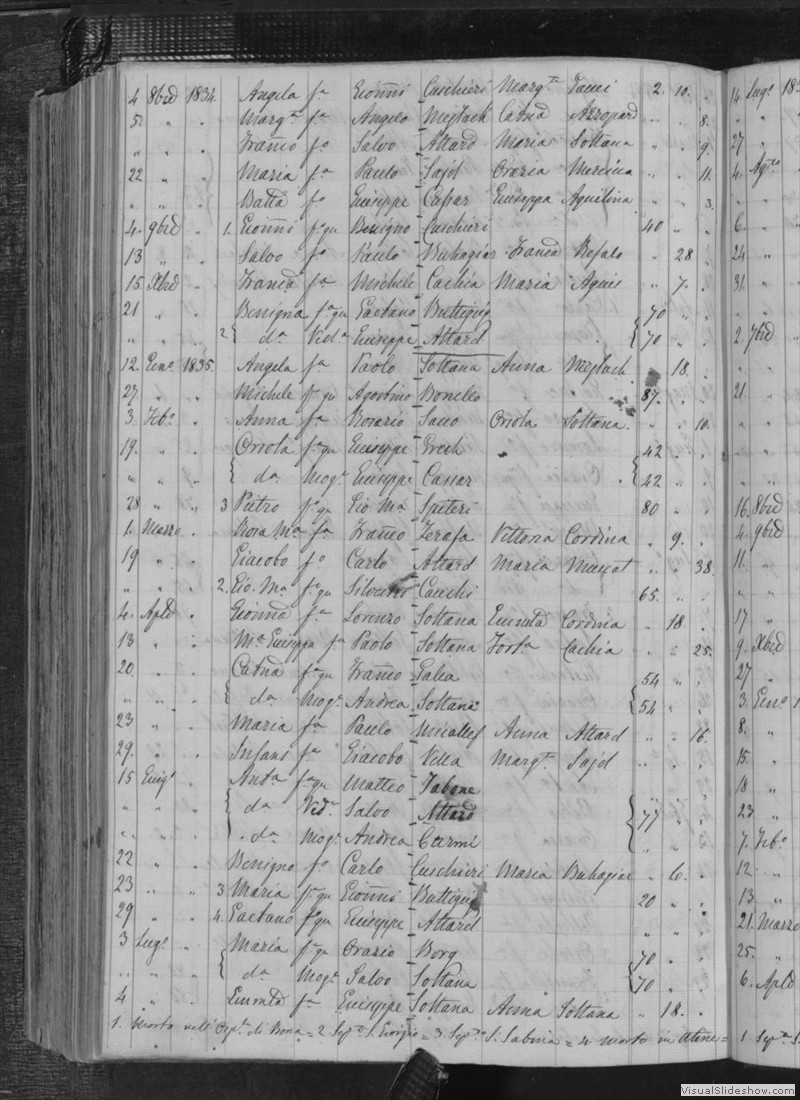 4 8bre 1834. Angela fa Gionni Cuschieri Margta Tanti 2. 10. "
5. " " Margta fa Angelo Meylach Catna Azzopard " " 8.
" " " Franco fo Salvo Attard Maria Soltana " " 9.
22 " " Maria fa Paulo Sajd Orazia " " 11.
" " " Batta fo Giuseppe Caspar Giuseppa Aquilina " " 3.
4. 9bre " 1. Gionni fo qu Benigno Cuschieri 40 " "
13 " " Salvo fo Paulo Buhagiar Franca Refalo " 28 "
15 Xbre " Franca fa Michele Cachia Maria Agius " 7. "
21 " " Benigna fa qu Gaetano Buttigig 70
" " " 2 { da Veda Giuseppe Attard { 70
12. Geno 1835. Angela fa Paolo Soltana Anna Meylach 18.
27 " " Michele fo qu Agostino Bonello 87.
3. Febo " Anna fa Rosario Orsola Soltana " " 10
19. " " Orsola fa qu Giuseppe Grech 42
" " " { da Moge Giuseppe Cassar { 42
28 " " 3 Pietro fo qu Gio Ma Spiteri 80
1. Marzo " Rosa Ma fa Franco Zerafa Vittoria Cordina " 9.
19 " " Giacobo fo Carlo Attard Maria Muscat " " 38.
" " " 2. Gio. Ma fo qu Silvestro Cauchi 65.
4. Aple " Gionna fa Lorenzo Soltana Cordina " 18.
13 " " Ma Giuseppa fa Paolo Soltana Forta Cachia " " 25.
20. " " Catna fa qu Franco Galea 54
" " " { da Moge Andrea Soltana { 54
23 " " Maria fa Paulo Micallef Anna Attard " " 16.
29. " " Infans fa Giacobo Vella Margta Sajd
15 Giugo " fa qu Matteo Tabone
" " " { da Veda Salvo Attard { 77
" " " da Moge Andrea Curmi
22 " " Benigno fo Carlo Cuschieri Maria Buhagiar " 6.
23 " " 3 Maria fa qu Gionni Buttigig 20
29 " " 4. Gaetano fo qu Giuseppe Attard
3 Lugo " Maria fa qu Orazio Borg 70
" " " { da Moge Salvo Soltana { 70
4 " " fa Giuseppe Soltana Anna Soltana " 18.
1. Morto nell' Ospl di Bona = 2 Sepo S. Giorgio = 3 Sepo S. Sabina = 4 morto in Atene =
14 Lugo 183
27 "
4. Agto
6. "
24 "
31. "
2. 7bre
21. "
16. 8bre
4. 9bre
11. "
17 "
9. Xbre
27 "
3. Geno 1
8. "
15. "
18 "
23 "
7. Febo
12. "
13 "
21. Marzo
25. "
6. Aple
1. Sepo S.
VisualSlideshow.com